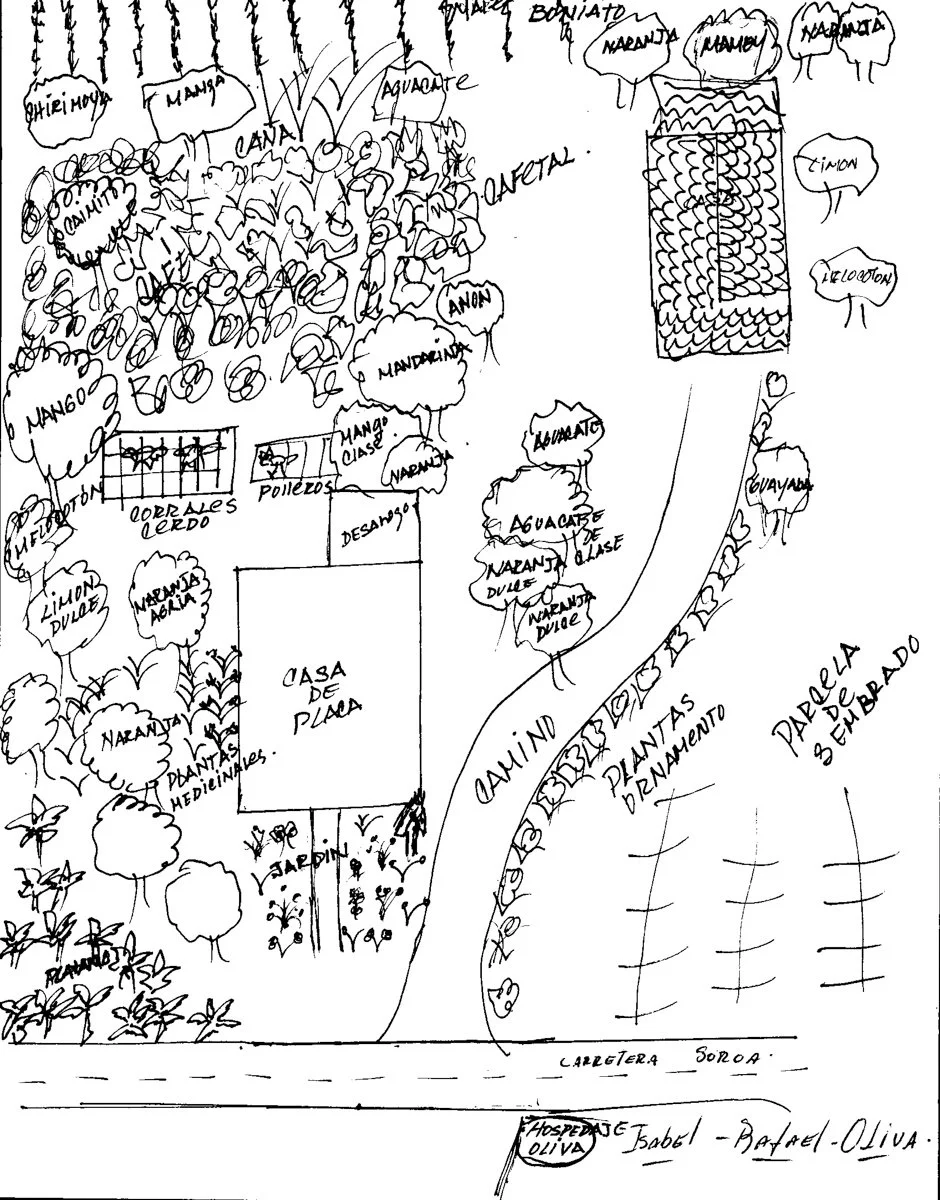 BONIATO
NARANJA
MAMEY
NARANJA
CHIRIMOYA
MANGA
AGUACATE
CAÑA
CAFETAL.
LIMON
CAIMITO
CASA
CAFE
MELOCOTON
ANON
MANDARINA
MANGO
MANGO
CLASE
NARANJA
AGUACATE
GUAYABA
POLLEROS
CORRALES
CERDO
MELOCOTÓN
DESAHOGO
AGUACATE
DE
CLASE
NARANJA
DULCE
LIMON
DULCE
NARANJA
AGRIA
NARANJA
DULCE
CASA
DE
PLACA
PARCELA
DE
SEMBRADO
NARANJA
PLANTAS
MEDICINALES.
CAMINO
PLANTAS
ORNAMENTO
JARDIN
PLATANO
CARRETERA SOROA.
HOSPEDAJE
OLIVA
Isabel - Rafael - OLIVA.